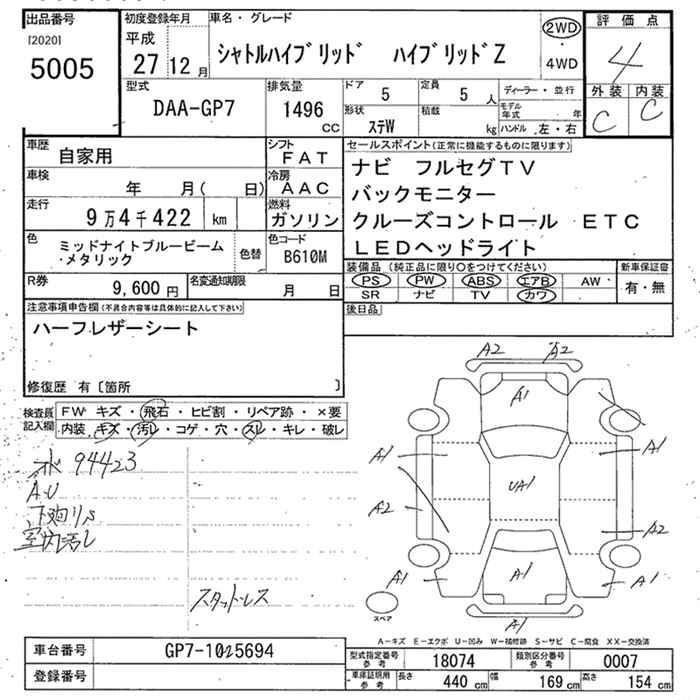 出品番号
[2020]
5005
初度登録年月
平成
27 12月
車名・グレード
シャトルハイブリッド ハイブリッドZ
2WD
・
4WD
評価点
4
外装 内装
C C
型式
DAA-GP7
排気量
1496
CC
ドア
5
定員
5人
ディーラー・並行
形状
ステW
積載
kg
モデル年式 年
ハンドル 左・右
車歴
自家用
シフト
FAT
車検
年 月( 日)
冷房
AAC
走行
9万4千422 km
燃料
ガソリン
色
ミッドナイトブルービーム
・メタリック
色替
色コード
B610M
R券
9,600円
名変通知期限
月 日
セールスポイント(正常に機能するものに限ります)
ナビ フルセグTV
バックモニター
クルーズコントロール ETC
LEDヘッドライト
装備品 (純正品に限り○をつけてください)
新車保証書
PS PW ABS エアB AW
SR ナビ TV カワ
有・無
後日品
注意事項申告欄(不具合内容等は具体的に記入して下さい)
ハーフレザーシート
修復歴 有〔箇所 〕
検査員
記入欄
FW キズ・飛石・ヒビ割・リペア跡・×要
内装・キズ・汚レ・コゲ・穴・スレ・キレ・破レ
94423
A・U
下廻りS
室内汚レ
スタッドレス
A2 A2
A1
A1 A1
UA1
A2 A2
A1 A1 A1
A1
スペア
A－キズ E－エクボ U－凹み W－補修跡 S－サビ C－腐食 XX－交換済
車台番号
GP7-1025694
登録番号
型式指定番号
参考
18074
類別区分番号
参考
0007
車庫証明用
参考
長さ
440 cm
幅
169 cm
高さ
154 cm